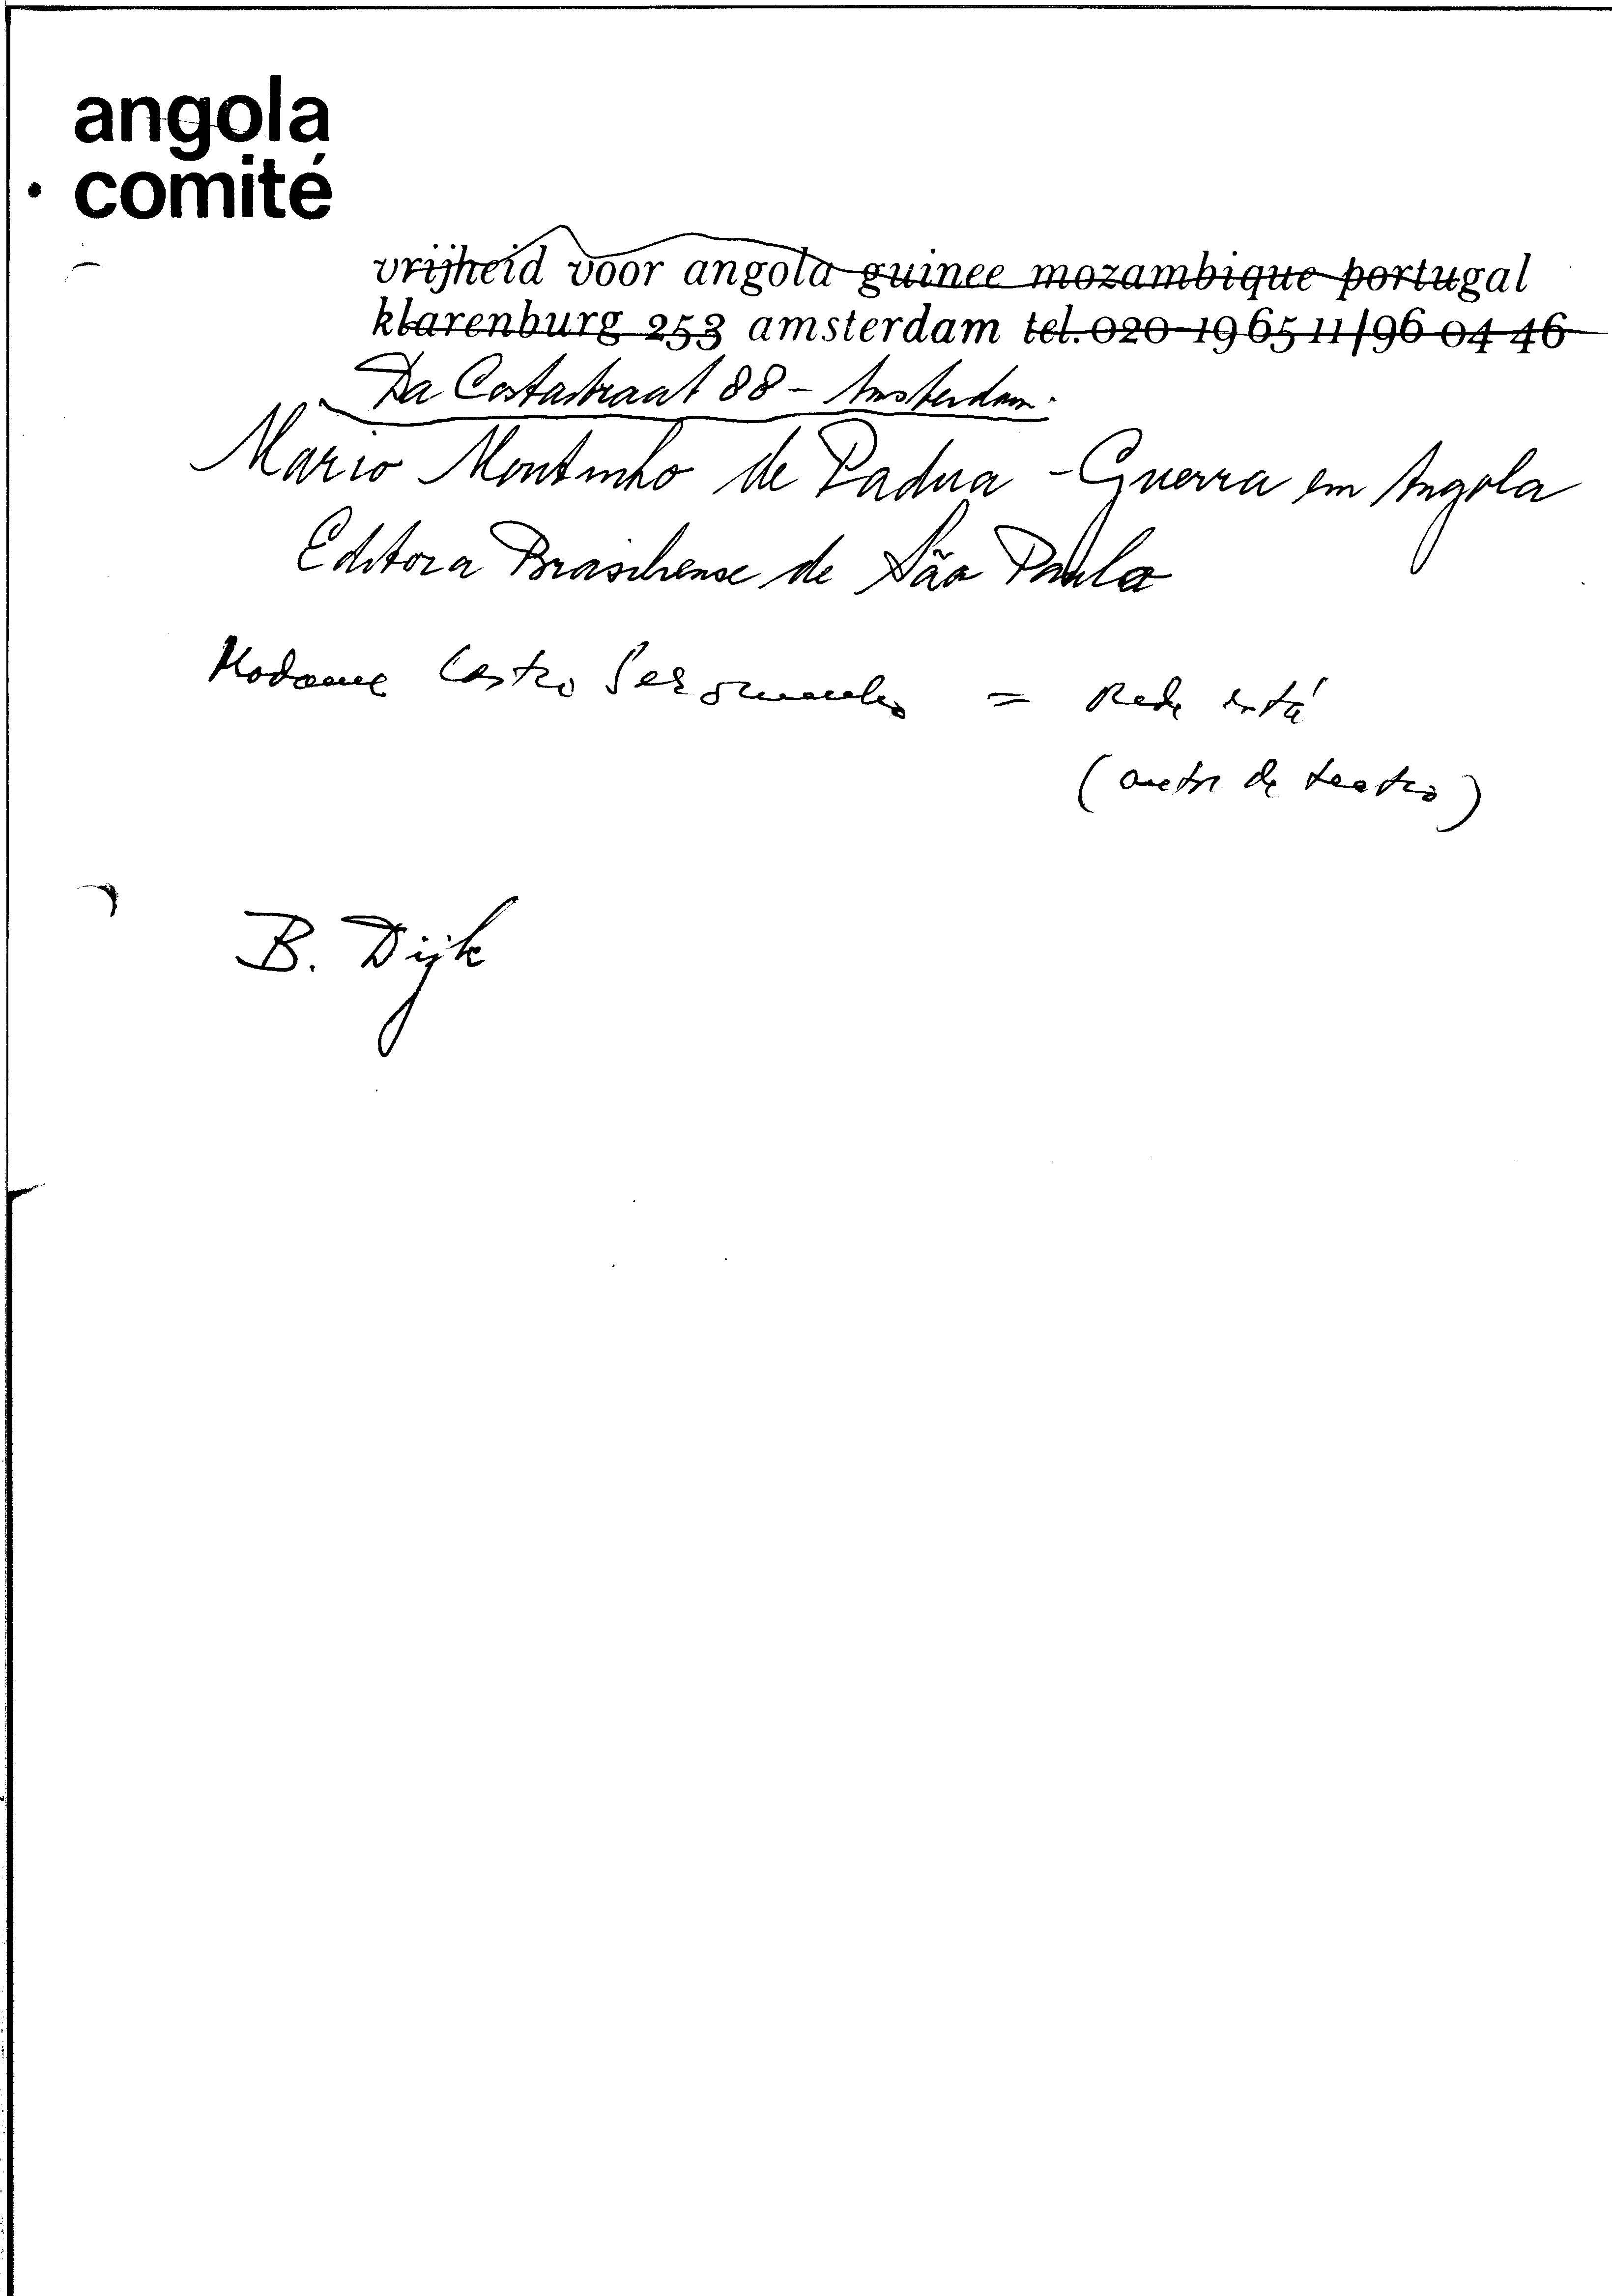 angola
comité
vrijheid voor angola guinee mozambique portugal
klarenburg 253 amsterdam tel. 020-19 65 11/96 04 46
Da Costastraat 88 - Amsterdam.
Mário Moutinho de Padua - Guerra em Angola
Editora Brasiliense de São Paulo
Madame Castro Soromenho = Rede está
(autor de teatro)
B. Dijk